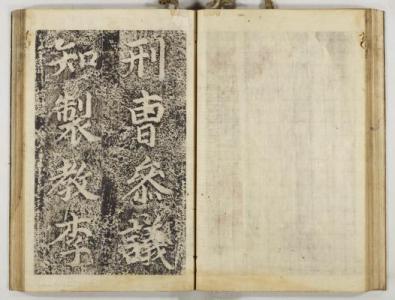 刑曹叅議
知製教李